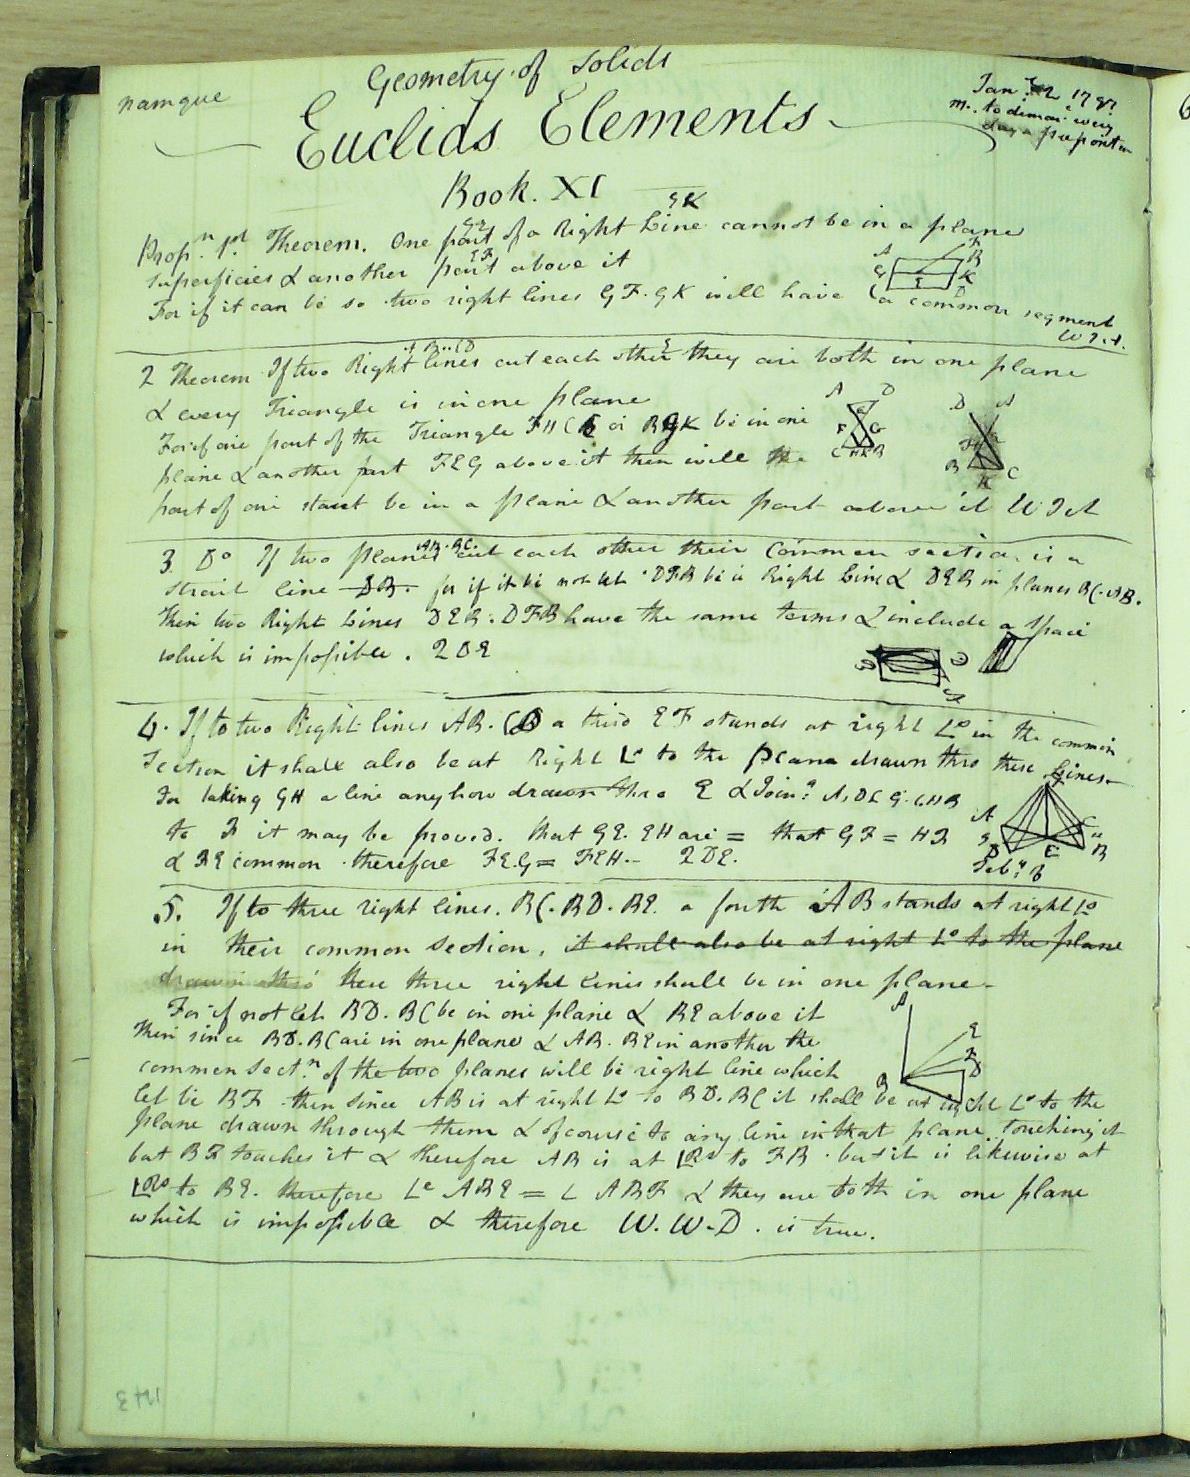 Geometry of Solids
namque
Euclids Elements
Jan:
m. to demon: every
day a proposition
Book. XI
GK
Prop.n 1.st Theorem. One part of a Right Line cannot be in a plane
superficies & another part above it
For if it can be so two right lines GF. GK will have a common segment
2 Theorem If two Right lines cut each other they are both in one plane
& every Triangle is in one plane
For if one part of the Triangle FHC or BGK be in one
plane & another part FEG above it then will the
part of one strait be in a plane & another part above it
3. Do If two planes AB. BC. cut each other their Common section is a
strait line DB. for if it be not let DFB be a Right Line & DEB in planes BC. AB.
Then two Right Lines DEB. DFB have the same terms & include a space
which is impossible. QDE
4. If to two Right lines AB. CD a third EF stands at right Ls in the common
Section it shall also be at Right Ls to the plane drawn thro these lines
For taking GH a line any how drawn thro E & Join:g
to F it may be proved. that GE. EH are = that GF = HF
& FE common therefore FEG = FEH - QDE.
Feb:y 6
5. If to three right lines. BC. BD. BE. a fourth AB stands at right Ls
in their common section, it shall also be at right Ls to the plane
drawn thro' these three right lines shall be in one plane -
For if not let BD. BC be in one plane & BE above it
Then since BD. BC are in one plane & AB. BE in another the
common sect.n of the two planes will be right line which
let be BF then since AB is at right Ls to BD. BC it shall be at right Ls to the
plane drawn through them & of course to any line in that plane touching it
but BF touches it & therefore AB is at LRs to FB. but it is likewise at
LRs to BE. therefore Le ABE = L ABF & they are both in one plane
which is impossible & therefore W. W. D. is true.